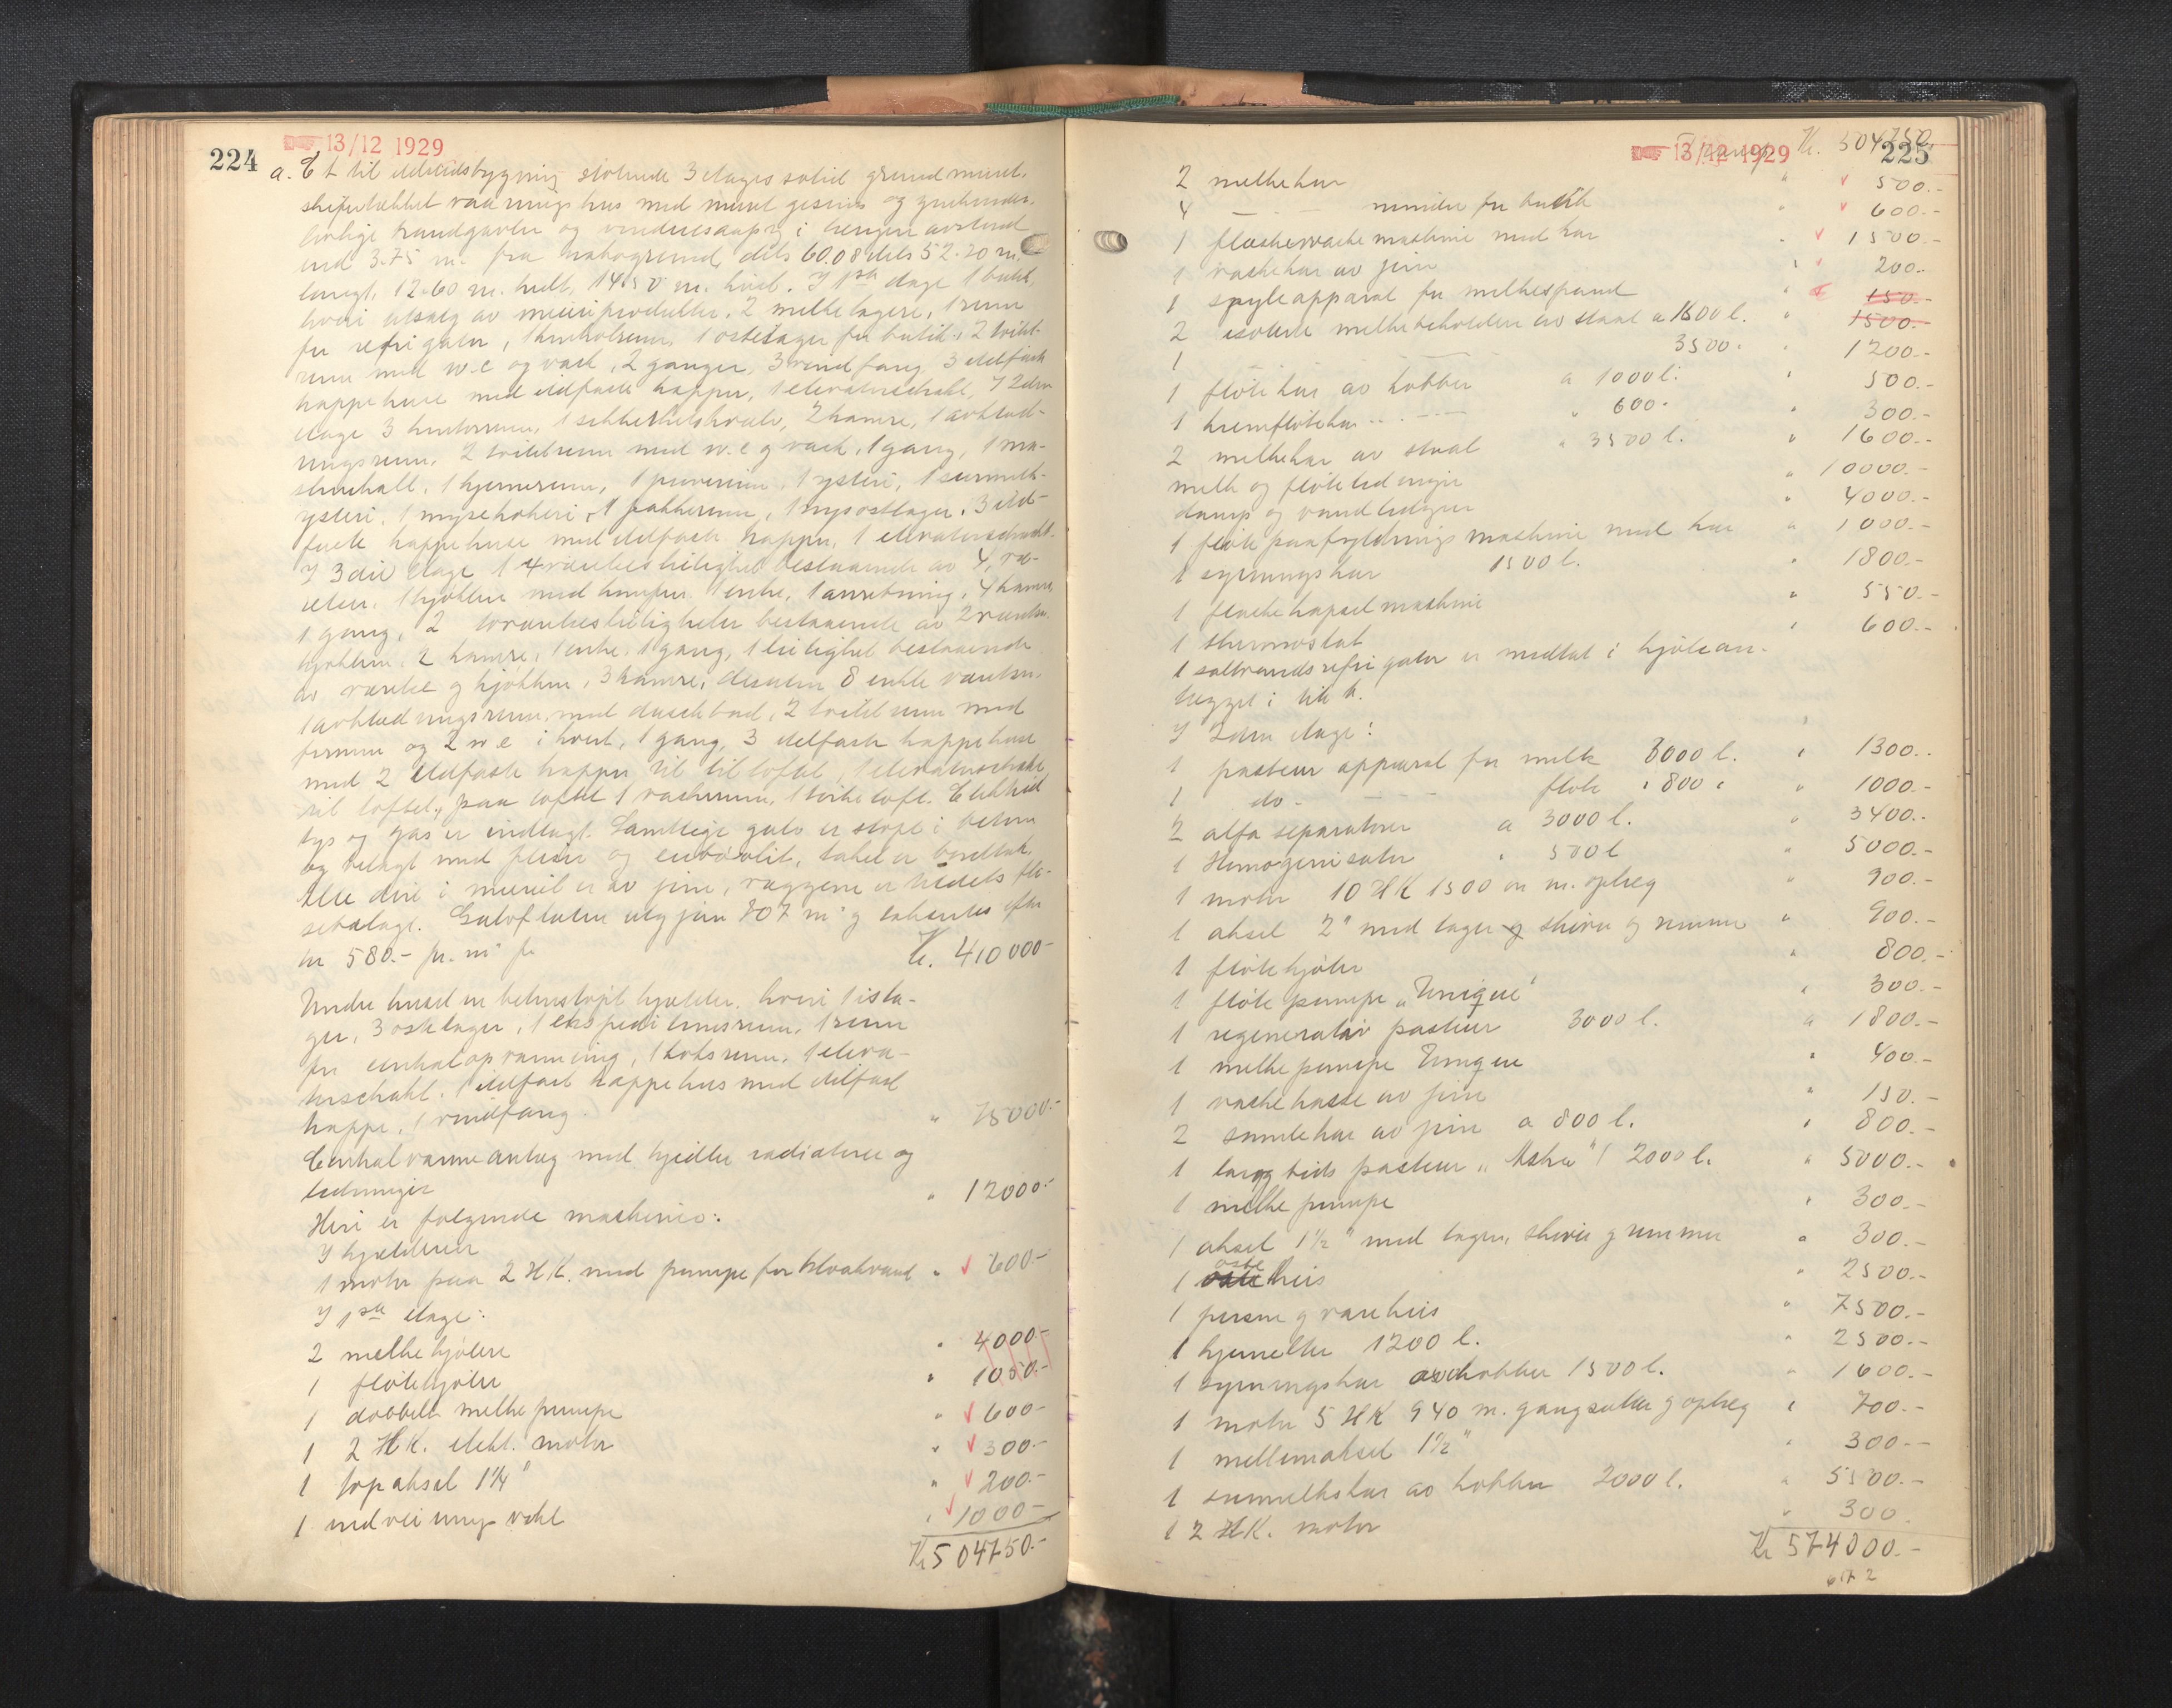 224
13/12 1929
a. Et til utilidsbygning stötende 3 etages solid grundmuret,
skifertækket vaaningshus med muret gesims og
brandgavler og vindusaapng i længere avstand
end 3.75 m. fra nabogrund, dels 60.08 dels 52.20 m.
langt, 12.60 m. bredt, 14.50 m. höit. I 1ste etage 1 butik,
hvori utsalg av meieriprodukter, 2 melkelagere, 1 rum
for refrigator, 1 kontorrum, 1 ostelager for butik, 2 toilet-
rum med w.c og vask, 2 ganger, 3 vindfang, 3 ildfaste
trappehuse med ildfaste trapper, 1 elevatorschakt, I 2den
etage 3 kontorrum, 1 sikkerhetshvælv, 2 kamre, 1 avklæd-
ningsrum, 2 toiletrum med w.c og vask, 1 gang, 1 ma-
skinhall, 1 kjernerum, 1 pröverum, 1 ysteri, 1 surmelk-
ysteri, 1 mysekokeri, 1 pakkerum, 1 mysostlager, 3 ild-
faste trappehuse med ildfaste trapper, 1 elevatorschakt.
I 3die etage 1 4værelses leilighet bestaaende av 4 væ-
relser, 1 kjökken med komfur, 1 entre, 1 anretning, 4 kamre,
1 gang, 2 toværelsesleiligheter bestaaende av 2 værelser
kjökken, 2 kamre, 1 entre, 1 gang, 1 leilighet bestaaende
av værelse og kjökken, 3 kamre, desuten 8 enkle værelser,
1 avklædningsrum med duschbad, 2 toiletrum med
og 2 w.c i hvert, 1 gang, 3 ildfaste trappehuse
med 2 ildfaste trapper til til loftet, 1 elevatorschakt
til loftet, paa loftet 1 vaskerum, 1 törkeloft. Elektrisk
lys og gas er indlagt. Samtlige gulv er stöpt i beton
og belagt med fliser og euböolit, taket er bordtak.
Alle dele i meieriet er av jern, væggene er tildels fli-
sebelagt. Gulvflaten utgjör 707 m² og takseres efter
kr 580.- pr. m² for Kr. 410000-
Under huset er betonstöpt kjælder, hvori 1 isla-
ger, 3 ostelager, 1 ekspedisjonsrum, 1 rum
for centralopvarming, 1 koksrum, 1 eleva-
torschakt, 1 ildfast trappehus med ildfast
trappe, 1 vindfang " 75000.-
Centralvarmeanlæg med kjedler radiatorer og
ledninger " 12000.-
Heri er fölgende maskineri:
I kjælderen
1 motor paa 2 HK. med pumpe for kloakvand " 600.-
I 1ste etage:
2 melkekjölere " 4000.-
1 flötekjöler " 1050.-
1 dobbelt melkepumpe " 600-
1 2 HK. elekt. motor " 300.-
1 topaksel 1¼" " 200.-
1 indveiningsvekt " 1000-
Kr 504750.-
225
13/12 1929
Kr. 504750.
2 melkekar " 500.-
4 — - mindre for butik " 600.-
1 flaskevaskemaskine med kar " 1500.-
1 vaskekar av jern " 200.-
1 spyleapparat for melkespand " 150.-
2 isolerte melkebeholdere av staal a 1800 l. " 1500.-
1 — 3500 " " 1200.-
1 flötekar av kobber a 1000 l. " 500.-
1 kremflötekar " — " 600 " " 300.-
2 melkekar av staal " 3500 l. " 1600.-
melk og flöteledninger " 10000.-
damp og vandledninger " 4000.-
1 flötepaafyldningsmaskine med kar " 1000.-
1 syrningskar 1500 l. " 1800.-
1 flaskekapselmaskine " 550.-
1 thermostat " 600.-
1 saltvandsrefrigator er medtat i kjölean-
lægget i litr b.
I 2den etage:
1 pasteur apparat for melk 3000 l. " 1300.-
1 do - — flöte " 800 " " 1000.-
2 alfa separatorer a 3000 l. " 3400.-
1 Homogenisator " 500 l " 5000.-
1 motor 10 HK 1500 om m. oplæg " 900.-
1 aksel 2" med lager og skiver og remmer " 900.-
1 flötekjöler " 800.-
1 flöte pumpe „Unique" " 300.-
1 regenerativ pasteur 3000 l. " 1800.-
1 melkepumpe Unique " 400.-
1 vaskekasse av jern " 150.-
2 samlekar av jern a 800 l. " 800.-
1 langtids pasteur „Astra" 2000 l. " 5000.-
1 melkepumpe " 300.-
1 aksel 1½" med lagre, skiver og remmer " 300.-
1 oste heis " 2500.-
1 person og vareheis " 7500.-
1 kjernelter 1200 l. " 2500.-
1 syrningskar av kobber 1500 l. " 1600.-
1 motor 5 HK 940 m. gangsætter og oplæg " 700.-
1 mellemaksel 1½" " 300.-
1 surmelkskar av kobber 2000 l. " 5500.-
1 2 HK. motor " 300.
Kr 574000.-